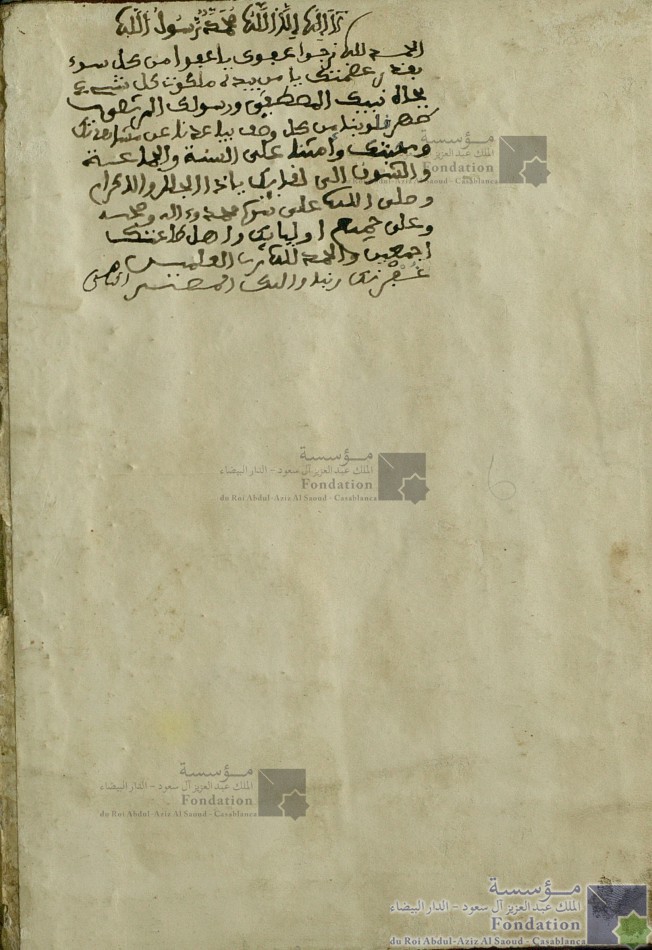 لا إله إلا الله محمد رسول الله
الحمد لله نرجوا عفوك يا عفوا من كل سوء
بقدر عظمتك يا من بيده ملكوت كل شيء
بجاه نبيك المصطفى ورسولك المرتضى
طهر قلوبنا من كل وصف يباعدنا عن مشاهدتك
ومحبتك وأمتنا على السنة والجماعة
والشوق إلى لقائك يا ذا الجلال والإكرام
وصلى الله على محمد وءاله وصحبه
وعلى جميع أوليائك وأهل طاعتك
أجمعين والحمد لله رب العلمين
غفرانك ربنا وإليك المصير
مؤسسة
الملك عبد العزيز آل سعود - الدار البيضاء
Fondation
du Roi Abdul-Aziz Al Saoud - Casablanca
مؤسسة
الملك عبد العزيز آل سعود - الدار البيضاء
Fondation
du Roi Abdul-Aziz Al Saoud - Casablanca
مؤسسة
الملك عبد العزيز آل سعود - الدار البيضاء
Fondation
du Roi Abdul-Aziz Al Saoud - Casablanca
مؤسسة
الملك عبد العزيز آل سعود - الدار البيضاء
Fondation
du Roi Abdul-Aziz Al Saoud - Casablanca